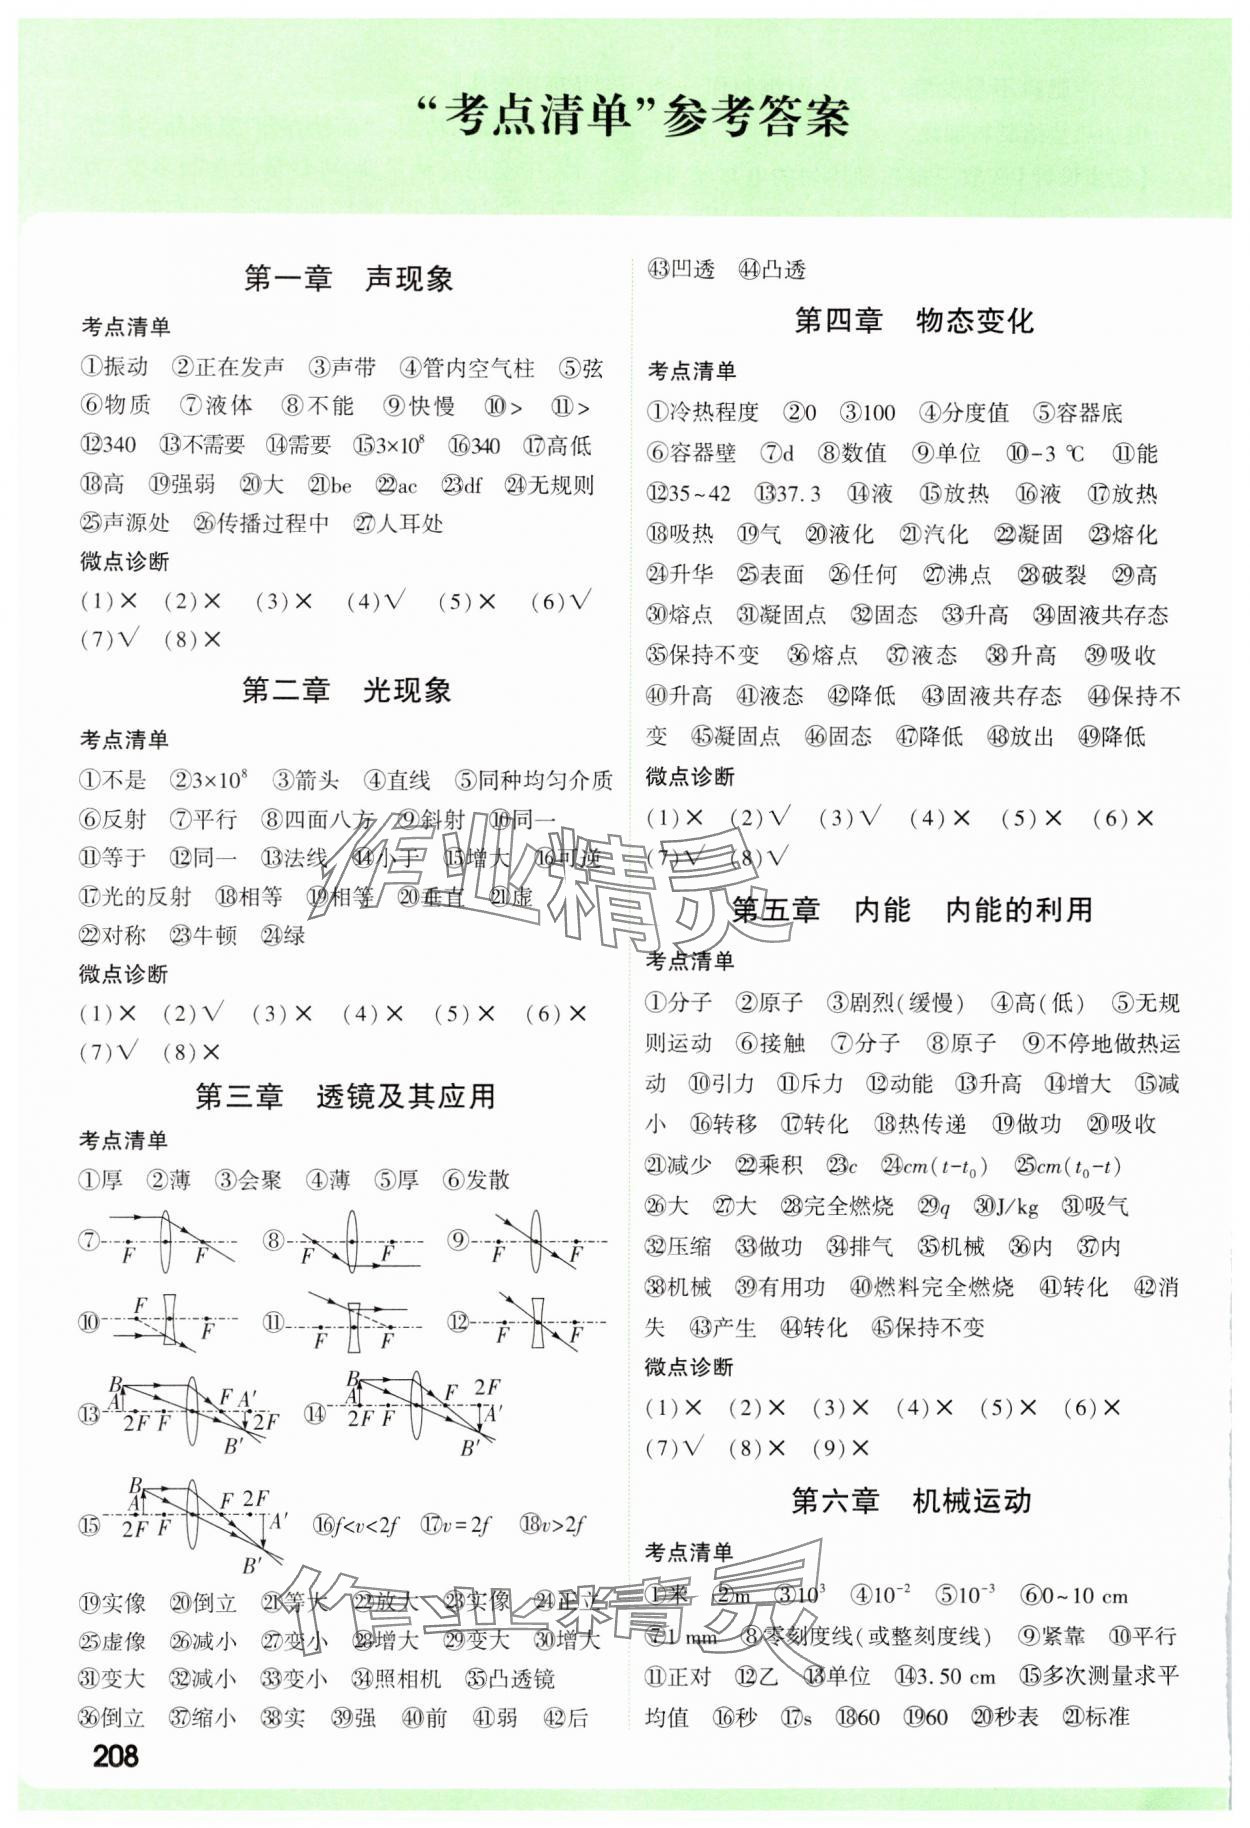 “考点清单”参考答案
第一章　声现象
考点清单
①振动　②正在发声　③声带　④管内空气柱　⑤弦
⑥物质　⑦液体　⑧不能　⑨快慢　⑩>　⑪>
⑫340　⑬不需要　⑭需要　⑮3×10⁸　⑯340　⑰高低
⑱高　⑲强弱　⑳大　㉑be　㉒ac　㉓df　㉔无规则
㉕声源处　㉖传播过程中　㉗人耳处
微点诊断
(1)×　(2)×　(3)×　(4)√　(5)×　(6)√
(7)√　(8)×
第二章　光现象
考点清单
①不是　②3×10⁸　③箭头　④直线　⑤同种均匀介质
⑥反射　⑦平行　⑧四面八方　⑨斜射　⑩同一
⑪等于　⑫同一　⑬法线　⑭小于　⑮增大　⑯可逆
⑰光的反射　⑱相等　⑲相等　⑳垂直　㉑虚
㉒对称　㉓牛顿　㉔绿
微点诊断
(1)×　(2)√　(3)×　(4)×　(5)×　(6)×
(7)√　(8)×
第三章　透镜及其应用
考点清单
①厚　②薄　③会聚　④薄　⑤厚　⑥发散
⑦ F F ⑧ F F ⑨ F F
⑩ F F ⑪ F F ⑫ F F
⑬ B A 2F F F A′ 2F B′ ⑭ B A 2F F F 2F A′ B′
⑮ B A 2F F F 2F A′ B′ ⑯f<v<2f　⑰v=2f　⑱v>2f
⑲实像　⑳倒立　㉑等大　㉒放大　㉓实像　㉔正立
㉕虚像　㉖减小　㉗变小　㉘增大　㉙变大　㉚增大
㉛变大　㉜减小　㉝变小　㉞照相机　㉟凸透镜
㊱倒立　㊲缩小　㊳实　㊴强　㊵前　㊶弱　㊷后
208
㊸凹透　㊹凸透
第四章　物态变化
考点清单
①冷热程度　②0　③100　④分度值　⑤容器底
⑥容器壁　⑦d　⑧数值　⑨单位　⑩-3 ℃　⑪能
⑫35~42　⑬37.3　⑭液　⑮放热　⑯液　⑰放热
⑱吸热　⑲气　⑳液化　㉑汽化　㉒凝固　㉓熔化
㉔升华　㉕表面　㉖任何　㉗沸点　㉘破裂　㉙高
㉚熔点　㉛凝固点　㉜固态　㉝升高　㉞固液共存态
㉟保持不变　㊱熔点　㊲液态　㊳升高　㊴吸收
㊵升高　㊶液态　㊷降低　㊸固液共存态　㊹保持不
变　㊺凝固点　㊻固态　㊼降低　㊽放出　㊾降低
微点诊断
(1)×　(2)√　(3)√　(4)×　(5)×　(6)×
(7)√　(8)√
第五章　内能　内能的利用
考点清单
①分子　②原子　③剧烈(缓慢)　④高(低)　⑤无规
则运动　⑥接触　⑦分子　⑧原子　⑨不停地做热运
动　⑩引力　⑪斥力　⑫动能　⑬升高　⑭增大　⑮减
小　⑯转移　⑰转化　⑱热传递　⑲做功　⑳吸收
㉑减少　㉒乘积　㉓c　㉔cm(t-t₀)　㉕cm(t₀-t)
㉖大　㉗大　㉘完全燃烧　㉙q　㉚J/kg　㉛吸气
㉜压缩　㉝做功　㉞排气　㉟机械　㊱内　㊲内
㊳机械　㊴有用功　㊵燃料完全燃烧　㊶转化　㊷消
失　㊸产生　㊹转化　㊺保持不变
微点诊断
(1)×　(2)×　(3)×　(4)×　(5)×　(6)×
(7)√　(8)×　(9)×
第六章　机械运动
考点清单
①米　②m　③10³　④10⁻²　⑤10⁻³　⑥0~10 cm
⑦1 mm　⑧零刻度线(或整刻度线)　⑨紧靠　⑩平行
⑪正对　⑫乙　⑬单位　⑭3.50 cm　⑮多次测量求平
均值　⑯秒　⑰s　⑱60　⑲60　⑳秒表　㉑标准
作业精灵
作业精灵